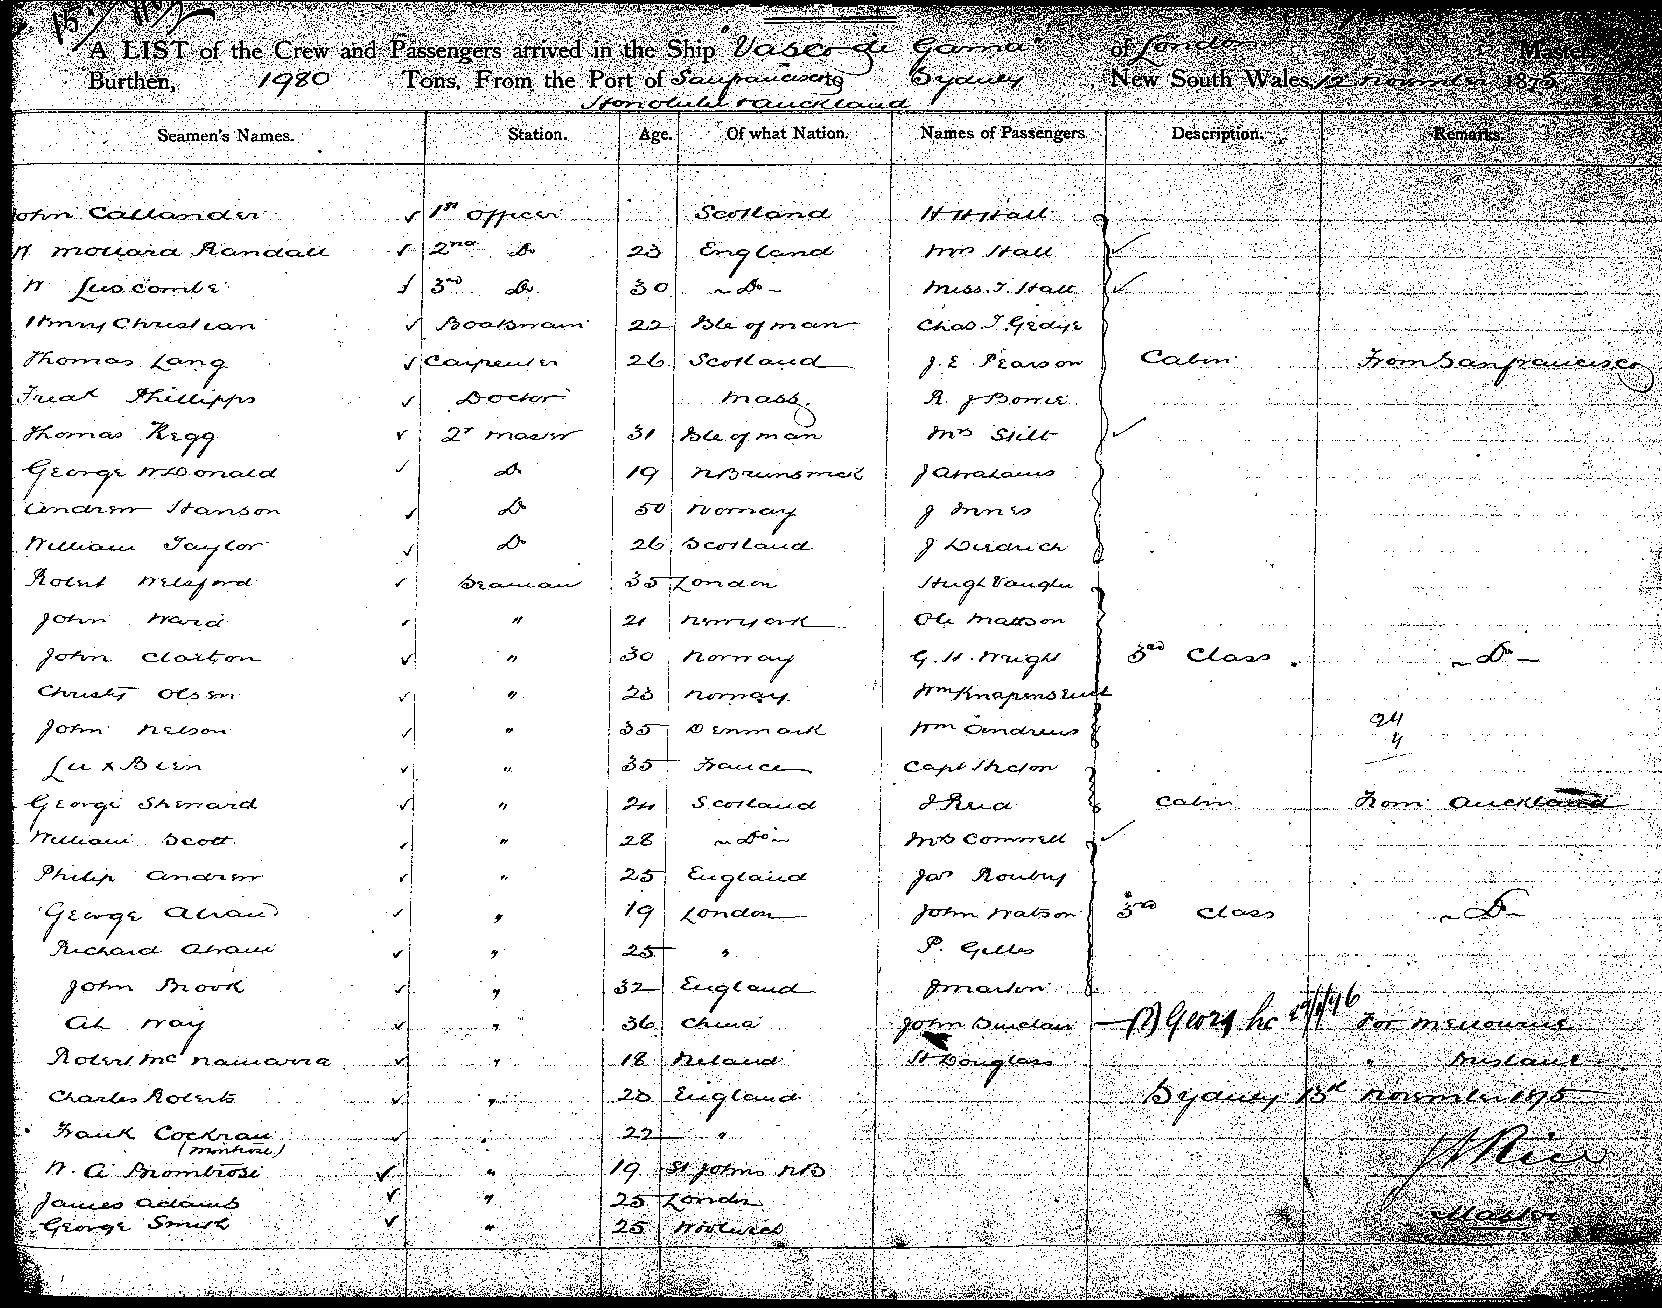 A LIST of the Crew and Passengers arrived in the Ship "Vasco de Gama" of London Master
Burthen, 1980 Tons, From the Port of Sanfrancisco to Sydney, New South Wales, 12 November 1875
Honolulu & Auckland
Seamen's Names. Station. Age. Of what Nation. Names of Passengers Description. Remarks.
John Callander ✓ 1st Officer Scotland H H Hall
Randall ✓ 2nd Do 23 England Mrs Hall ✓
W Luscombe ✓ 3rd Do 30 - Do - Miss. J. Hall ✓
Henry Christian ✓ Boatswain 22 Isle of man Chas J. Gedye
Thomas Lang ✓ Carpenter 26 Scotland J. E Pearson Cabin From Sanfrancisco
Phillipps ✓ Doctor Mass. R. J Bowie
Thomas Kegg ✓ 2r Master 31 Isle of man Mrs Stilt ✓
George McDonald ✓ Do 19 N Brunswick J Abrahams
Andrew Hanson ✓ Do 50 Norway J Innes
William Taylor ✓ Do 26 Scotland J Diedrich
Robert Welsford ✓ Seaman 35 London Hugh Vaughn
John Ward ✓ " 21 Newyork Ole Mattson
John Clarton ✓ " 30 Norway G. H. Wright 3rd Class. - Do -
Christ Olsen ✓ " 23 Norway Wm
John Nelson ✓ " 35 Denmark Wm Andrews 24
4
✓ " 35 France Capt
George Sherrard ✓ " 24 Scotland J Reid Cabin From Auckland
William Scott ✓ " 28 - Do - Mrs Cornwell ✓
Philip Andrew ✓ " 25 England Jas
George ✓ " 19 London John Watson 3rd Class - Do -
Richard ✓ " 25 " P. Gelles
John Brook ✓ " 32 England J Martin
Ah Way ✓ " 36 China John Sinclair For Melbourne
Robert McNamarra ✓ " 18 Ireland H Douglass " Brisbane
Charles Roberts ✓ " 20 England Sydney 13th November 1875
Frank Cockran ✓ " 22 "
(Montrose)
W. A. Brombrose ✓ " 19 St Johns NB J H Rice
James Adams ✓ " 25 London
George Smith ✓ " 25 Woolwich Master